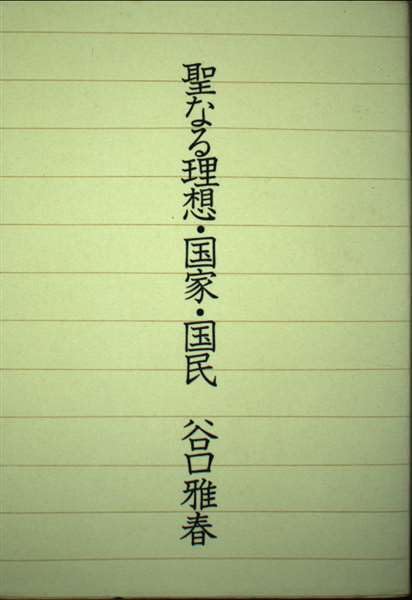 聖なる理想・国家・国民　谷口雅春